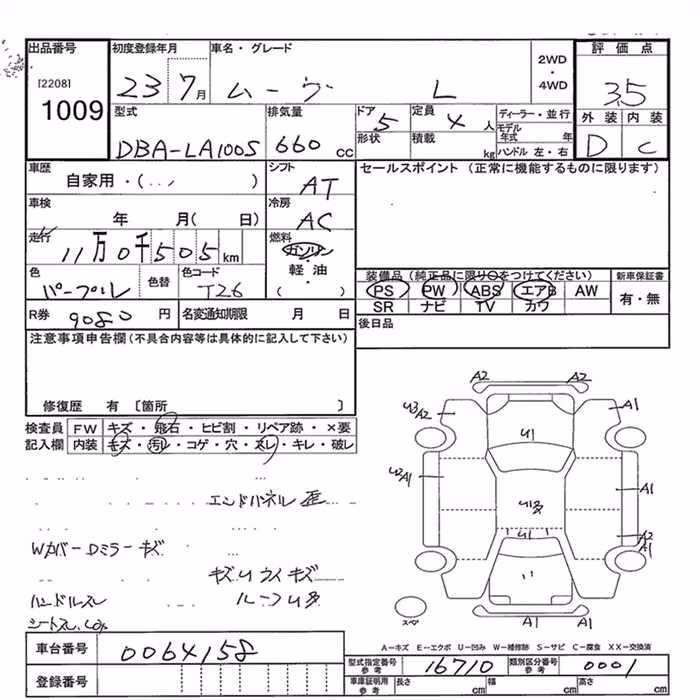 出品番号 初度登録年月 車名・グレード 評価点
[2208] 23 7月 ムーヴ L 2WD・4WD 3.5
1009
型式 排気量 ドア 5 定員 4人 ディーラー・並行 外装 内装
DBA-LA100S 660 cc 形状 積載 kg モデル年式 年 D C
ハンドル 左・右
車歴 シフト セールスポイント (正常に機能するものに限ります)
自家用・( ) AT
車検 冷房
年 月( 日) AC
走行 燃料
11万0千505km ガソリン
軽油
( )
色 色替 色コード 装備品(純正品に限り○をつけてください) 新車保証書
パープル T26 PS PW ABS エアB AW 有・無
SR ナビ TV カワ
R券 9080円 名変通知期限 月 日 後日品
注意事項申告欄(不具合内容等は具体的に記入して下さい)
修復歴 有 [箇所 ]
検査員 FW キズ・飛石・ヒビ割・リペア跡・×要
記入欄 内装 キズ・汚レ・コゲ・穴・スレ・キレ・破レ
A2 A2
U3 A2 A1
U1
U2 A1 U多 A1
U1 A2
A1
A1 A1
スペア
エンドパネル歪
Wカバー Dミラーキズ
キズUライキズ
ハンドルスレ ルーフU多
A-キズ E-エクボ U-凹み W-補修跡 S-サビ C-腐食 XX-交換済
車台番号 0064158
型式指定番号 参考 16710 類別区分番号 参考 0001
登録番号 車庫証明用 参考 長さ cm 幅 cm 高さ cm